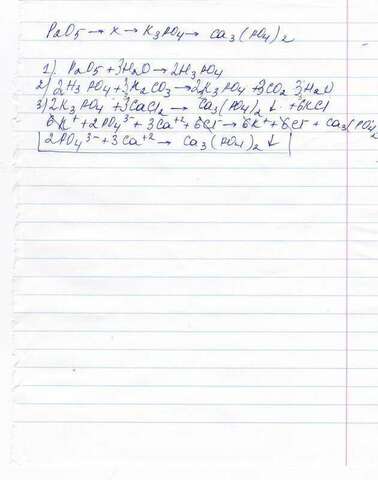 P2O5 → x → K3PO4 → Ca3(PO4)2
1) P2O5 + 3H2O → 2H3PO4
2) 2H3PO4 + 3K2CO3 → 2K3PO4 + 3CO2 3H2O
3) 2K3PO4 + 3CaCl2 → Ca3(PO4)2 ↓ + 6KCl
6K+ + 2PO4 3- + 3Ca+2 + 6Cl- → 6K+ + 6Cl- + Ca3(PO4)2
2PO4 3- + 3Ca+2 → Ca3(PO4)2 ↓